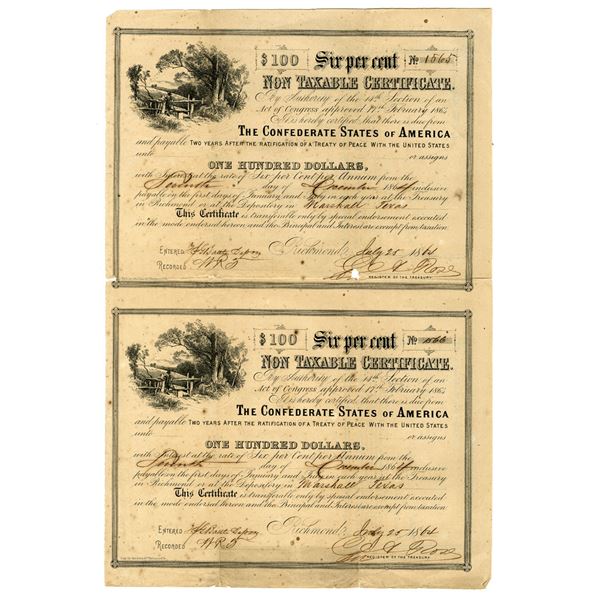 $100 Six per cent No 1565
NON TAXABLE CERTIFICATE.
By Authority of the 14th Section of an
Act of Congress approved 17th February 1864
It is hereby certified, that there is due from
THE CONFEDERATE STATES OF AMERICA
and payable TWO YEARS AFTER THE RATIFICATION OF A TREATY OF PEACE WITH THE UNITED STATES
unto or assigns
ONE HUNDRED DOLLARS,
with Interest at the rate of Six per Cent per Annum from the
day of 1864 inclusive
payable on the first days of January and July in each year at the Treasury
in Richmond or at the Depository in Marshall Texas
This Certificate is transferable only by special endorsement executed
in the mode endorsed hereon and the Principal and Interest are exempt from taxation.
ENTERED Richmond July 25 1864
RECORDED Rose
REGISTER OF THE TREASURY.
$100 Six per cent No 1566
NON TAXABLE CERTIFICATE.
By Authority of the 14th Section of an
Act of Congress approved 17th February 1864
It is hereby certified, that there is due from
THE CONFEDERATE STATES OF AMERICA
and payable TWO YEARS AFTER THE RATIFICATION OF A TREATY OF PEACE WITH THE UNITED STATES
unto or assigns
ONE HUNDRED DOLLARS,
with Interest at the rate of Six per Cent per Annum from the
day of 1864 inclusive
payable on the first days of January and July in each year at the Treasury
in Richmond or at the Depository in Marshall Texas
This Certificate is transferable only by special endorsement executed
in the mode endorsed hereon and the Principal and Interest are exempt from taxation.
ENTERED Richmond July 25 1864
RECORDED Rose
REGISTER OF THE TREASURY